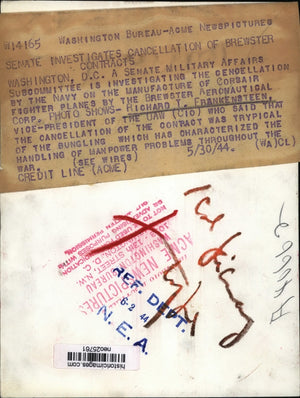 WASHINGTON BUREAU-ACME NEWSPICTURES
W14165
SENATE INVESTIGATES CANCELLATION OF BREWSTER
CONTRACTS
WASHINGTON, D.C. A SENATE MILITARY AFFAIRS
SUBCOMMITTEE IS INVESTIGATING THE CENCELLATION
BY THE NAVY ON THE MANUFACTURE OF CORSAIR
FIGHTER PLANES BY THE BREWSTER AERONAUTICAL
CORP. PHOTO SHOWS- RICHARD T. FRANKENSTEEN,
VICE-PRESIDENT OF THE UAW (CIO) WHO SAID THAT
THE CANCELLATION OF THE CONTACT WAS TRYPICAL
OF THE BUNGLING WHICH HAS CHARACTERIZED THE
HANDLING OF MANPOWER PROBLEMS THROUGHOUT THE
WAR. (SEE WIRES) 5/30/44. (WA)CL)
CREDIT LINE (ACME)
ACME NEWSPICTURES
WASHINGTON BUREAU
STREET, N.W.
WASHINGTON, D.C.
REF. DEPT.
6-2 44
N. E. A.
historicimages.com
neo25761